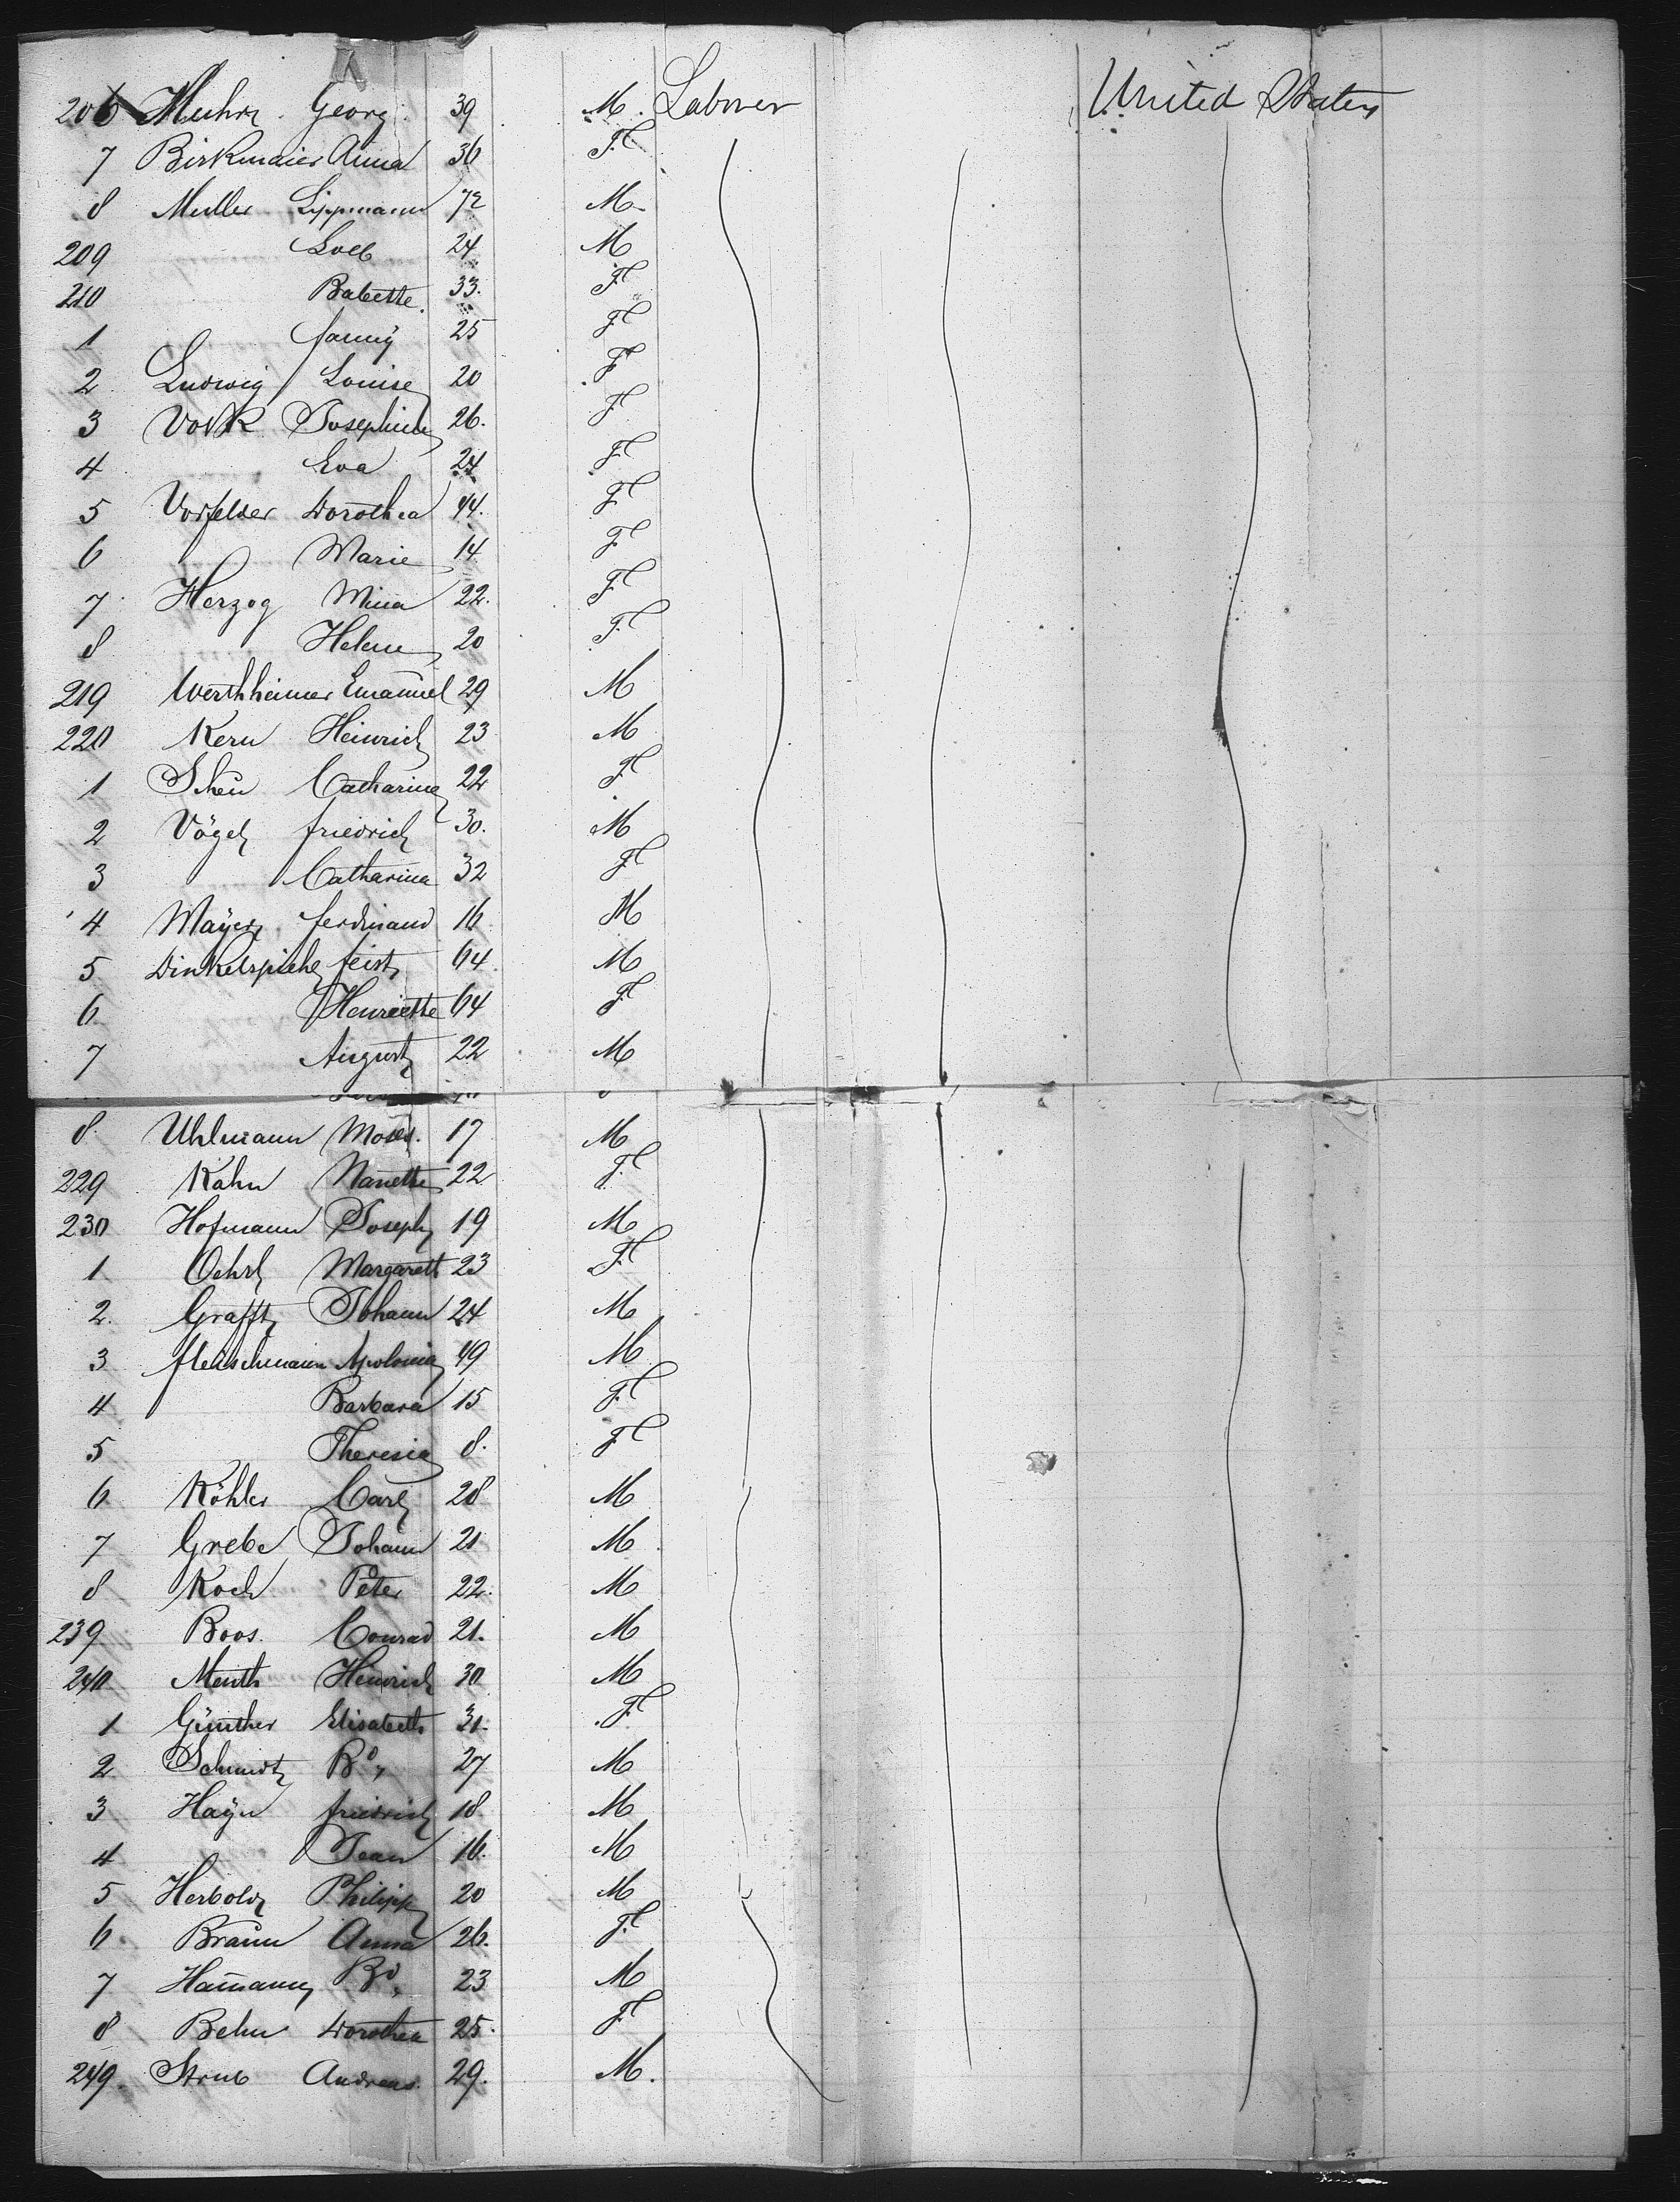 206 Muhr. Georg. 39 M. Laborer United States
7 Birkmaier Anna 36 F.
8 Muller Lippmann 72 M.
209 Loeb 24. M
210 Babette. 33. F
1 fanny 25 F
2. Ludwig Louise 20 F
3 Volk Josephine 26. F
4 Eva 24 F
5 Vorfelder Dorothea 44. F
6 Marie 14. F
7 Herzog Mina 22. F
8 Helene 20 F.
219 Werthheimer Emanuel 29 M
220 Kern Heinrich 23 M
1 Scheu Catharina 22 F
2 Vögel friedrich 30. M
3 Catharina 32 F
4 Mayer ferdinand 16 M
5 Dinkelspiehl feist 64. M
6. Henriette 64 F
7 August 22 M
8. Uhlmann Moses. 17 M
229 Kahn Nanette 22 F.
230 Hofmann Joseph 19 M
1 Oehrl Margareth 23 F
2. Grafft Johann 24 M
3 fleischmann Apolonia 49 M
4 Barbara 15 F
5 Theresia 8. F
6 Köhler Carl 28 M
7 Grebe Johann 21 M
8 Koch Peter 22. M
239 Boos. Conrad 21. M
240 Menth Heinrich 30 M
1 Günther Elisabeth 31. F
2 Schmidt 27 M
3 Hayn friedrich 18 M
4 Jean 16. M
5 Herbold Philipp 20 M
6. Braun Anna 26. F.
7 Hamann 23 M
8 Behn Dorothea 25. F
249. Strub Andreas. 29. M.